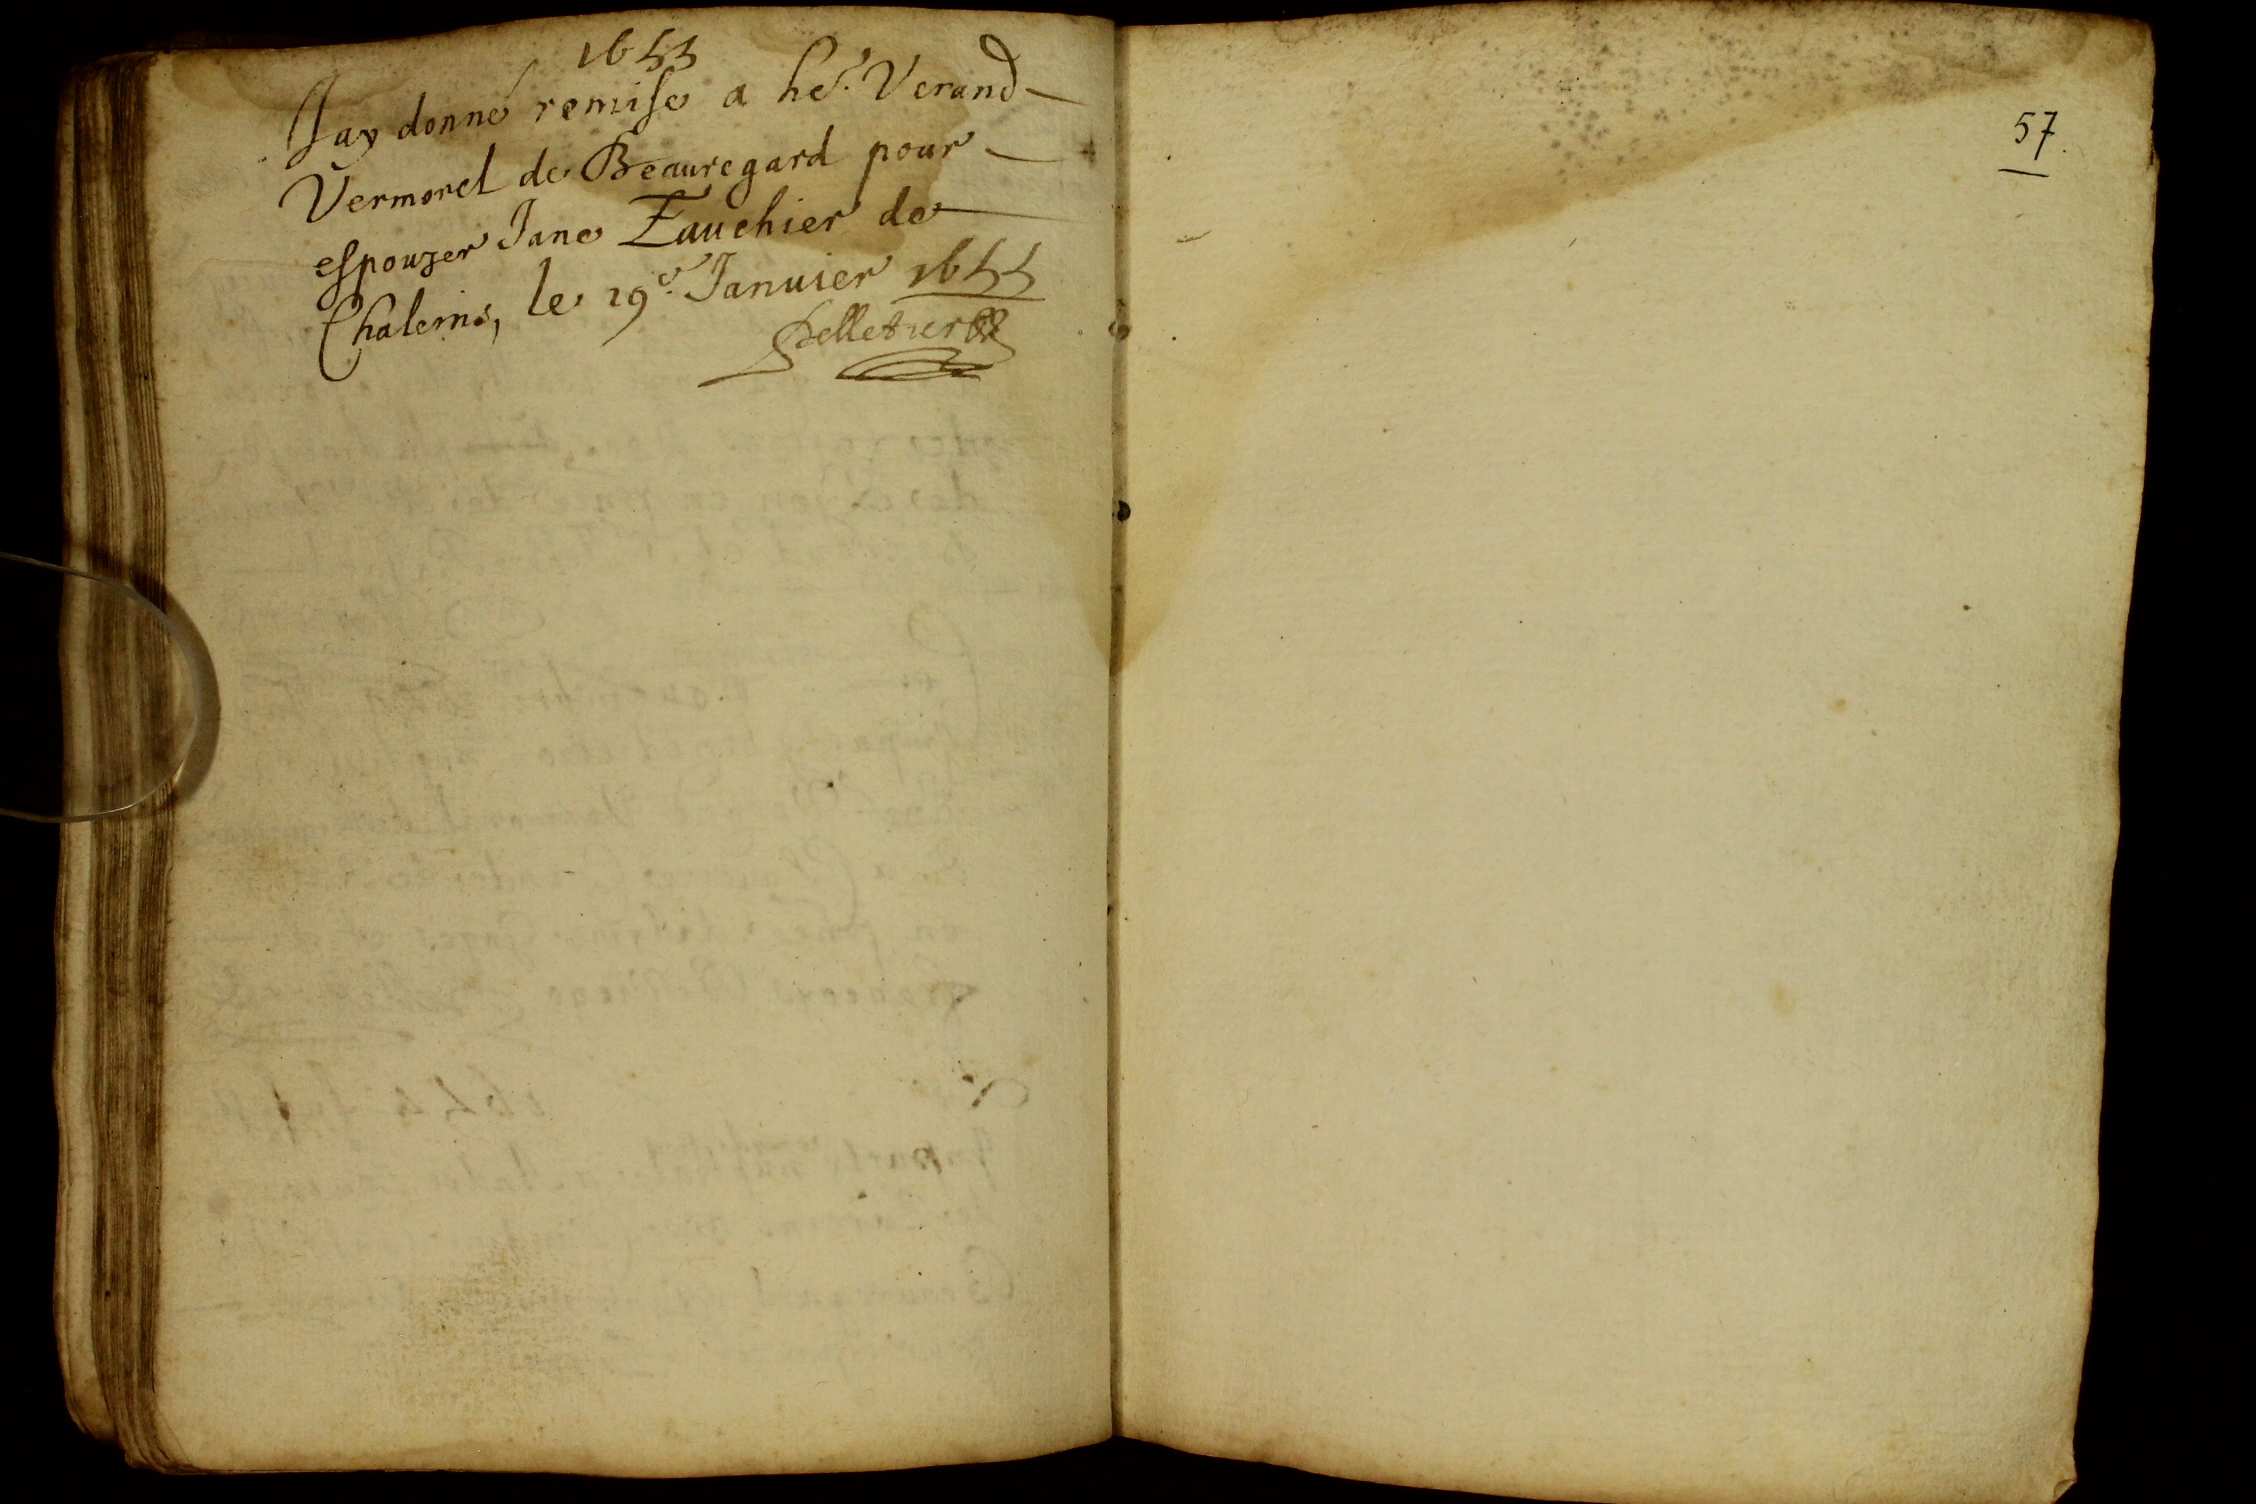 1655
Jay donné remise a he. Verand
Vermorel de Beauregard pour
espouzer Jane Fauchier de
Chaleins, le 19e. Januier 1655
Pelletier
57